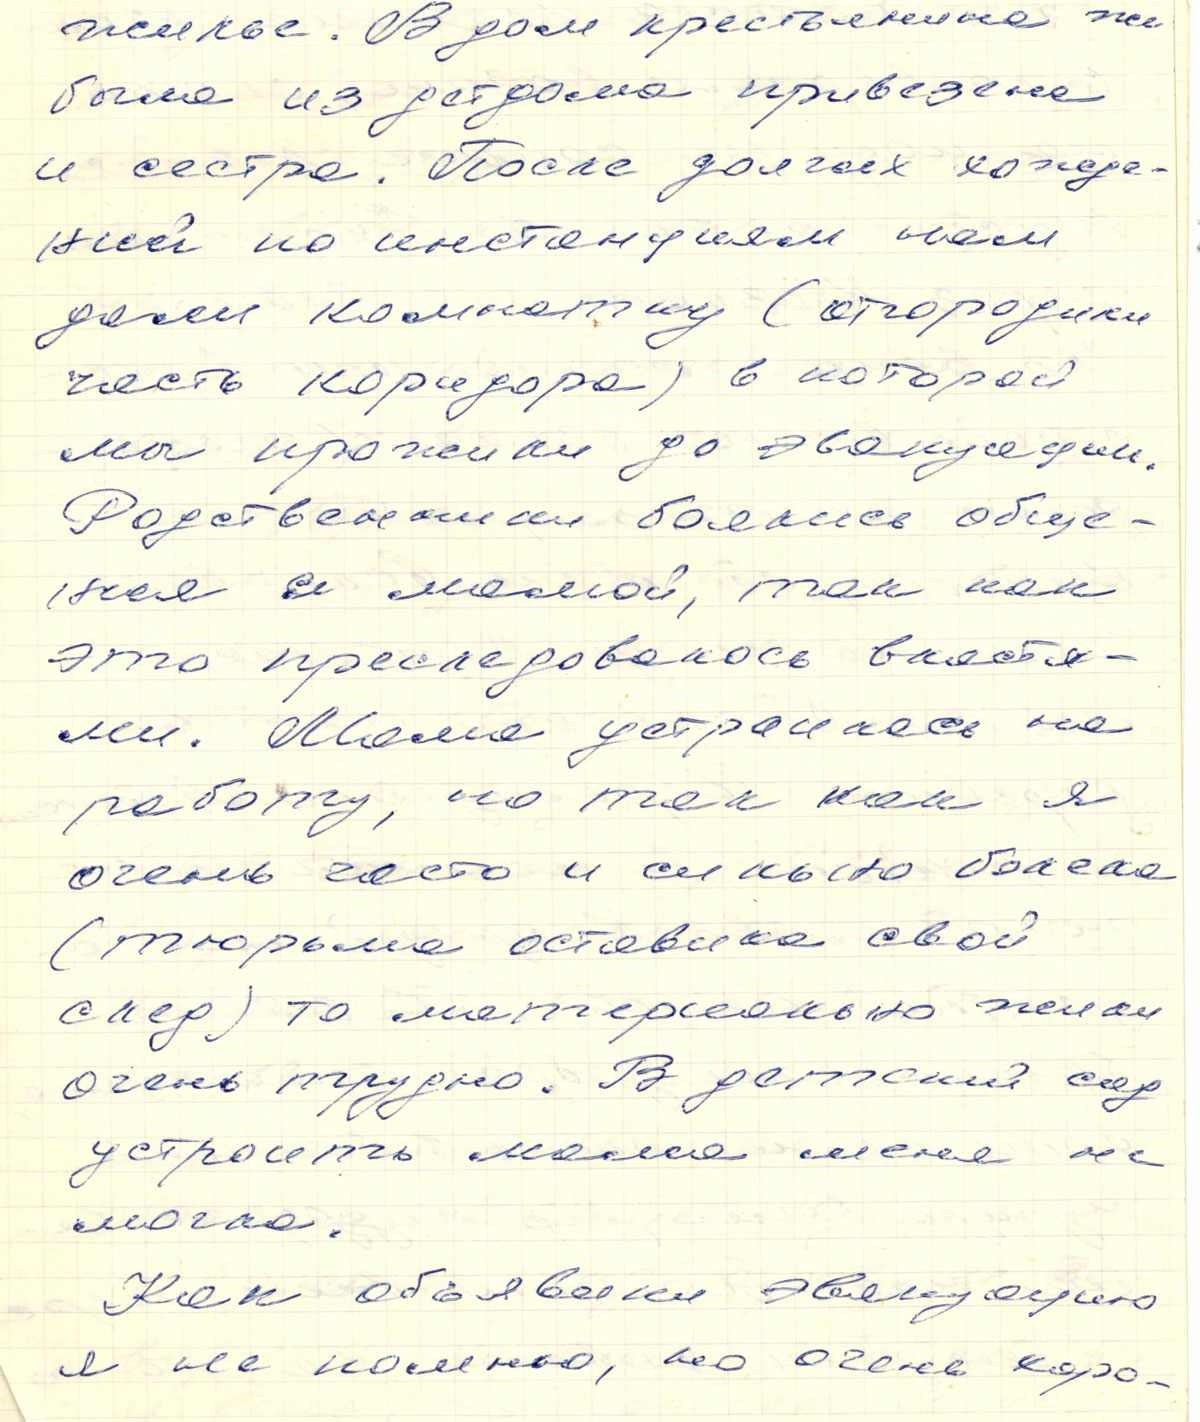 жилье. В дом крестьянина же
была из детдома привезена
и сестра. После долгих хожде-
ний по инстанциям нам
дали комнатку (отгородили
часть коридора) в которой
мы прожили до эвакуации.
Родственники боялись обще-
ния с мамой, так как
это преследовалось властя-
ми. Мама устроилась на
работу, но так как я
очень часто и сильно болела
(тюрьма оставила свой
след) то материально жили
очень трудно. В детский сад
устроить мама меня не
могла.
Как объявили эвакуацию
я не помню, но очень хоро-